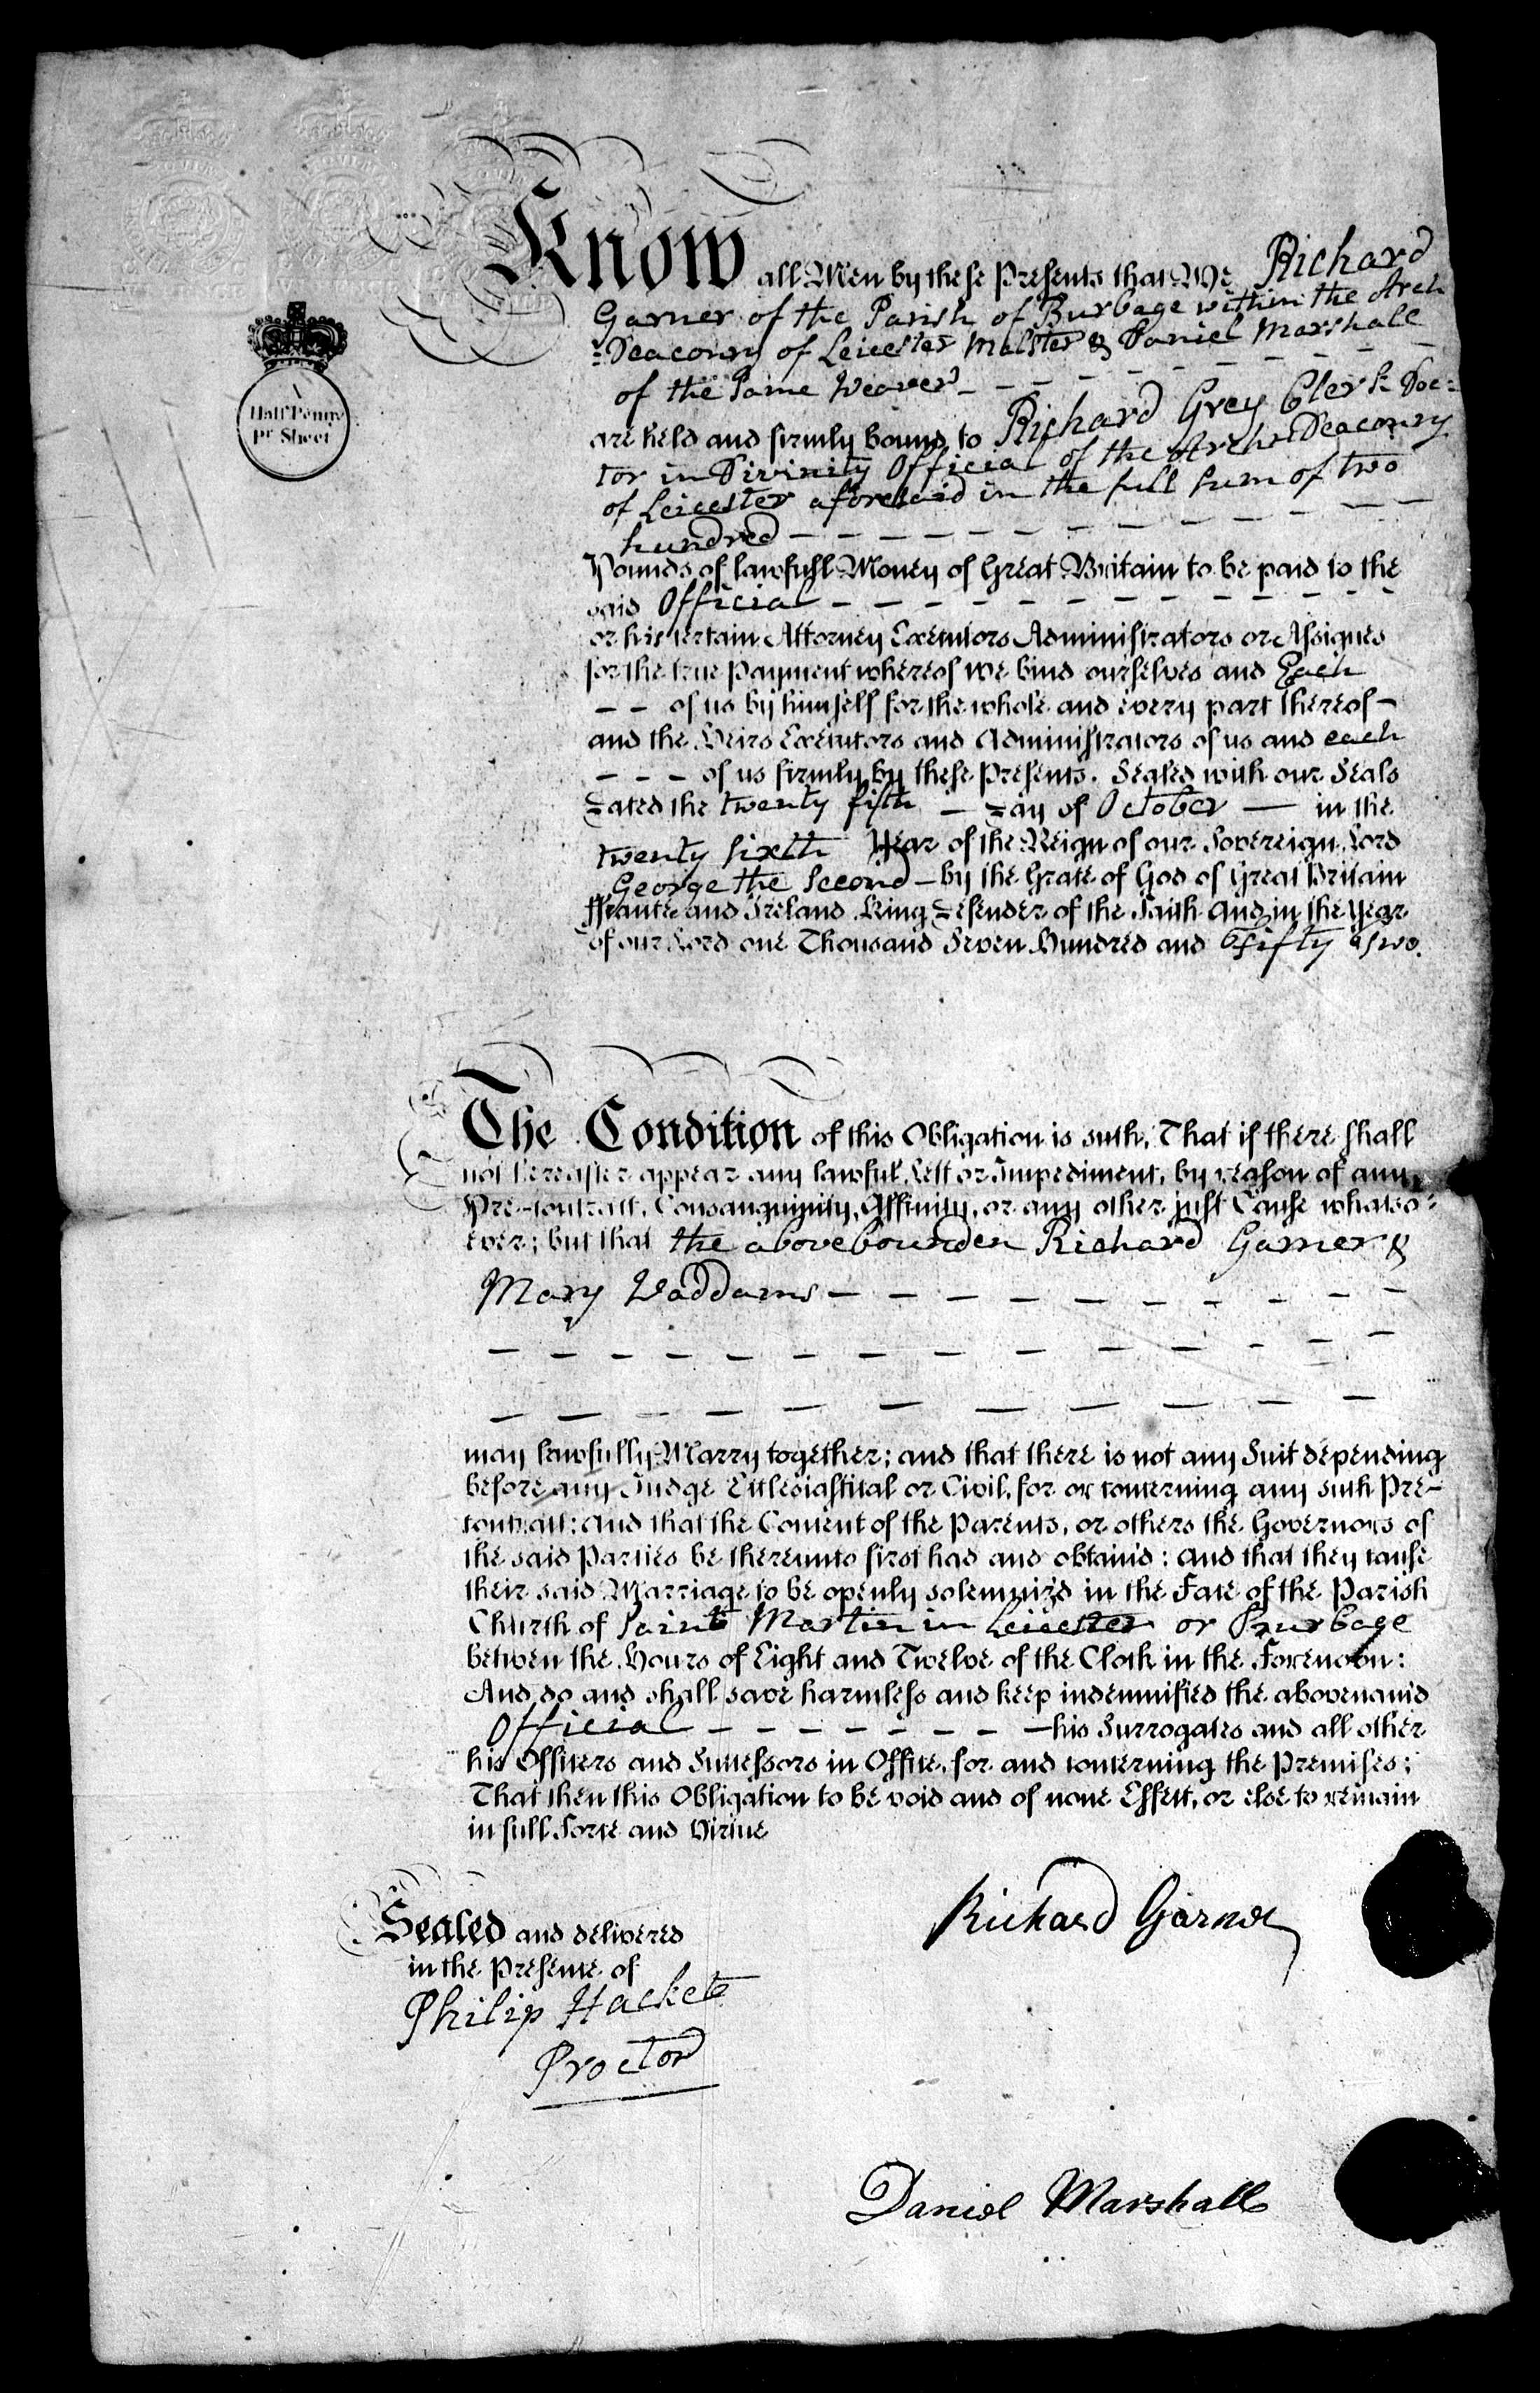 A
Half Penny
pr Sheet
Know all Men by these Presents that We Richard
Garner of the Parish of Burbage within the Arch
=Deaconry of Leicester Malster & Daniel Marshall
of the Same Weaver
are held and firmly bound to Richard Grey Clerk Doc=
tor in Divinity Official of the Arch=Deaconry
of Leicester aforesaid in the full sum of two
hundred
Pounds of lawfull Money of Great Britain to be paid to the
said Official
or his certain Attorney Executors Administrators or Assignes
for the true Payment whereof we bind ourselves and Each
of us by himself for the whole and every part thereof
and the Heirs Executors and Administrators of us and each
of us firmly by these Presents. Sealed with our Seals
Dated the twenty fifth Day of October in the
twenty sixth Year of the Reign of our Sovereign Lord
George the Second by the Grace of God of Great Britain
ffrance and Ireland King Defender of the Faith and in the Year
of our Lord one Thousand Seven Hundred and Fifty two.
The Condition of this Obligation is such, That if there shall
not hereafter appear any lawful Lett or Impediment, by reason of any
Pre-contract, Consanguinity, Affinity, or any other just Cause whatso=
ever; but that the abovebounden Richard Garner &
Mary Waddams
may lawfully Marry together; and that there is not any Suit depending
before any Judge Ecclesiastical or Civil, for or concerning any such Pre-
contract: and that the Consent of the Parents, or others the Governors of
the said Parties be thereunto first had and obtain'd: and that they cause
their said Marriage to be openly solemniz'd in the Face of the Parish
Church of Saint Martin in Leicester or Burbage
between the Hours of Eight and Twelve of the Clock in the Forenoon:
And do and shall save harmless and keep indemnified the abovenam'd
Official his Surrogates and all other
his Officers and Successors in Office, for and concerning the Premises;
That then this Obligation to be void and of none Effect, or else to remain
in full Force and Virtue
Sealed and delivered
in the Presence of
Philip Hackett
Proctor
Richard Garner
Daniel Marshall